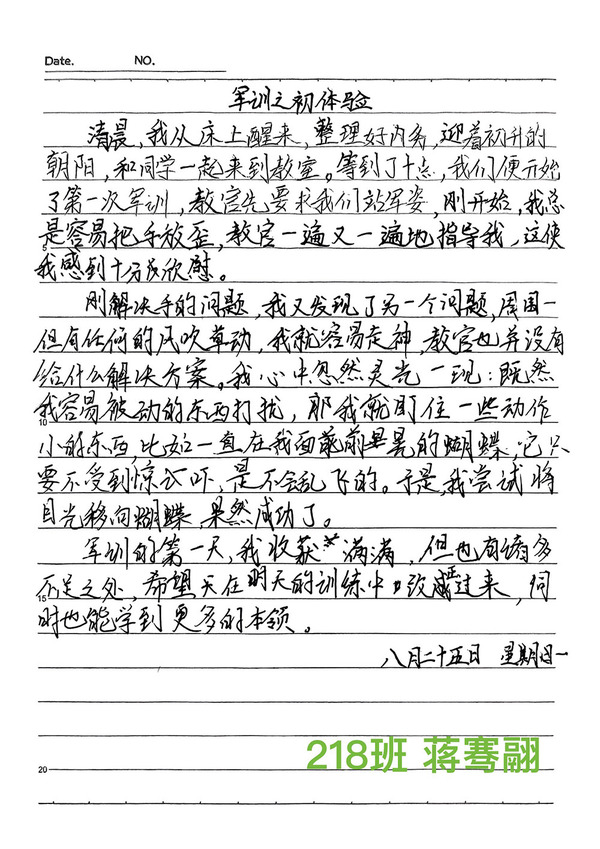 Date. NO.
军训之初体验
清晨,我从床上醒来,整理好内务,迎着初升的
朝阳,和同学一起来到教室。等到了十点,我们便开始
了第一次军训,教官先要求我们站军姿,刚开始,我总
是容易把手放歪,教官一遍又一遍地指导我,这使
5
我感到十分欣慰。
刚解决手的问题,我又发现了另一个问题,周围一
但有任何的风吹草动,我就容易走神,教官也并没有
给什么解决方案。我心中忽然灵光一现:既然
我容易被动的东西打扰,那我就盯住一些动作
10
小的东西,比如一直在我面前晃晃的蝴蝶,它只
要不受到惊吓,是不会乱飞的。于是,我尝试将
目光移向蝴蝶 果然成功了。
军训的第一天,我收获满满,但也有诸多
不足之处,希望在明天的训练中改过来,同
15
时也能学到更多的本领。
八月二十五日 星期一
218班 蒋骞翮
20